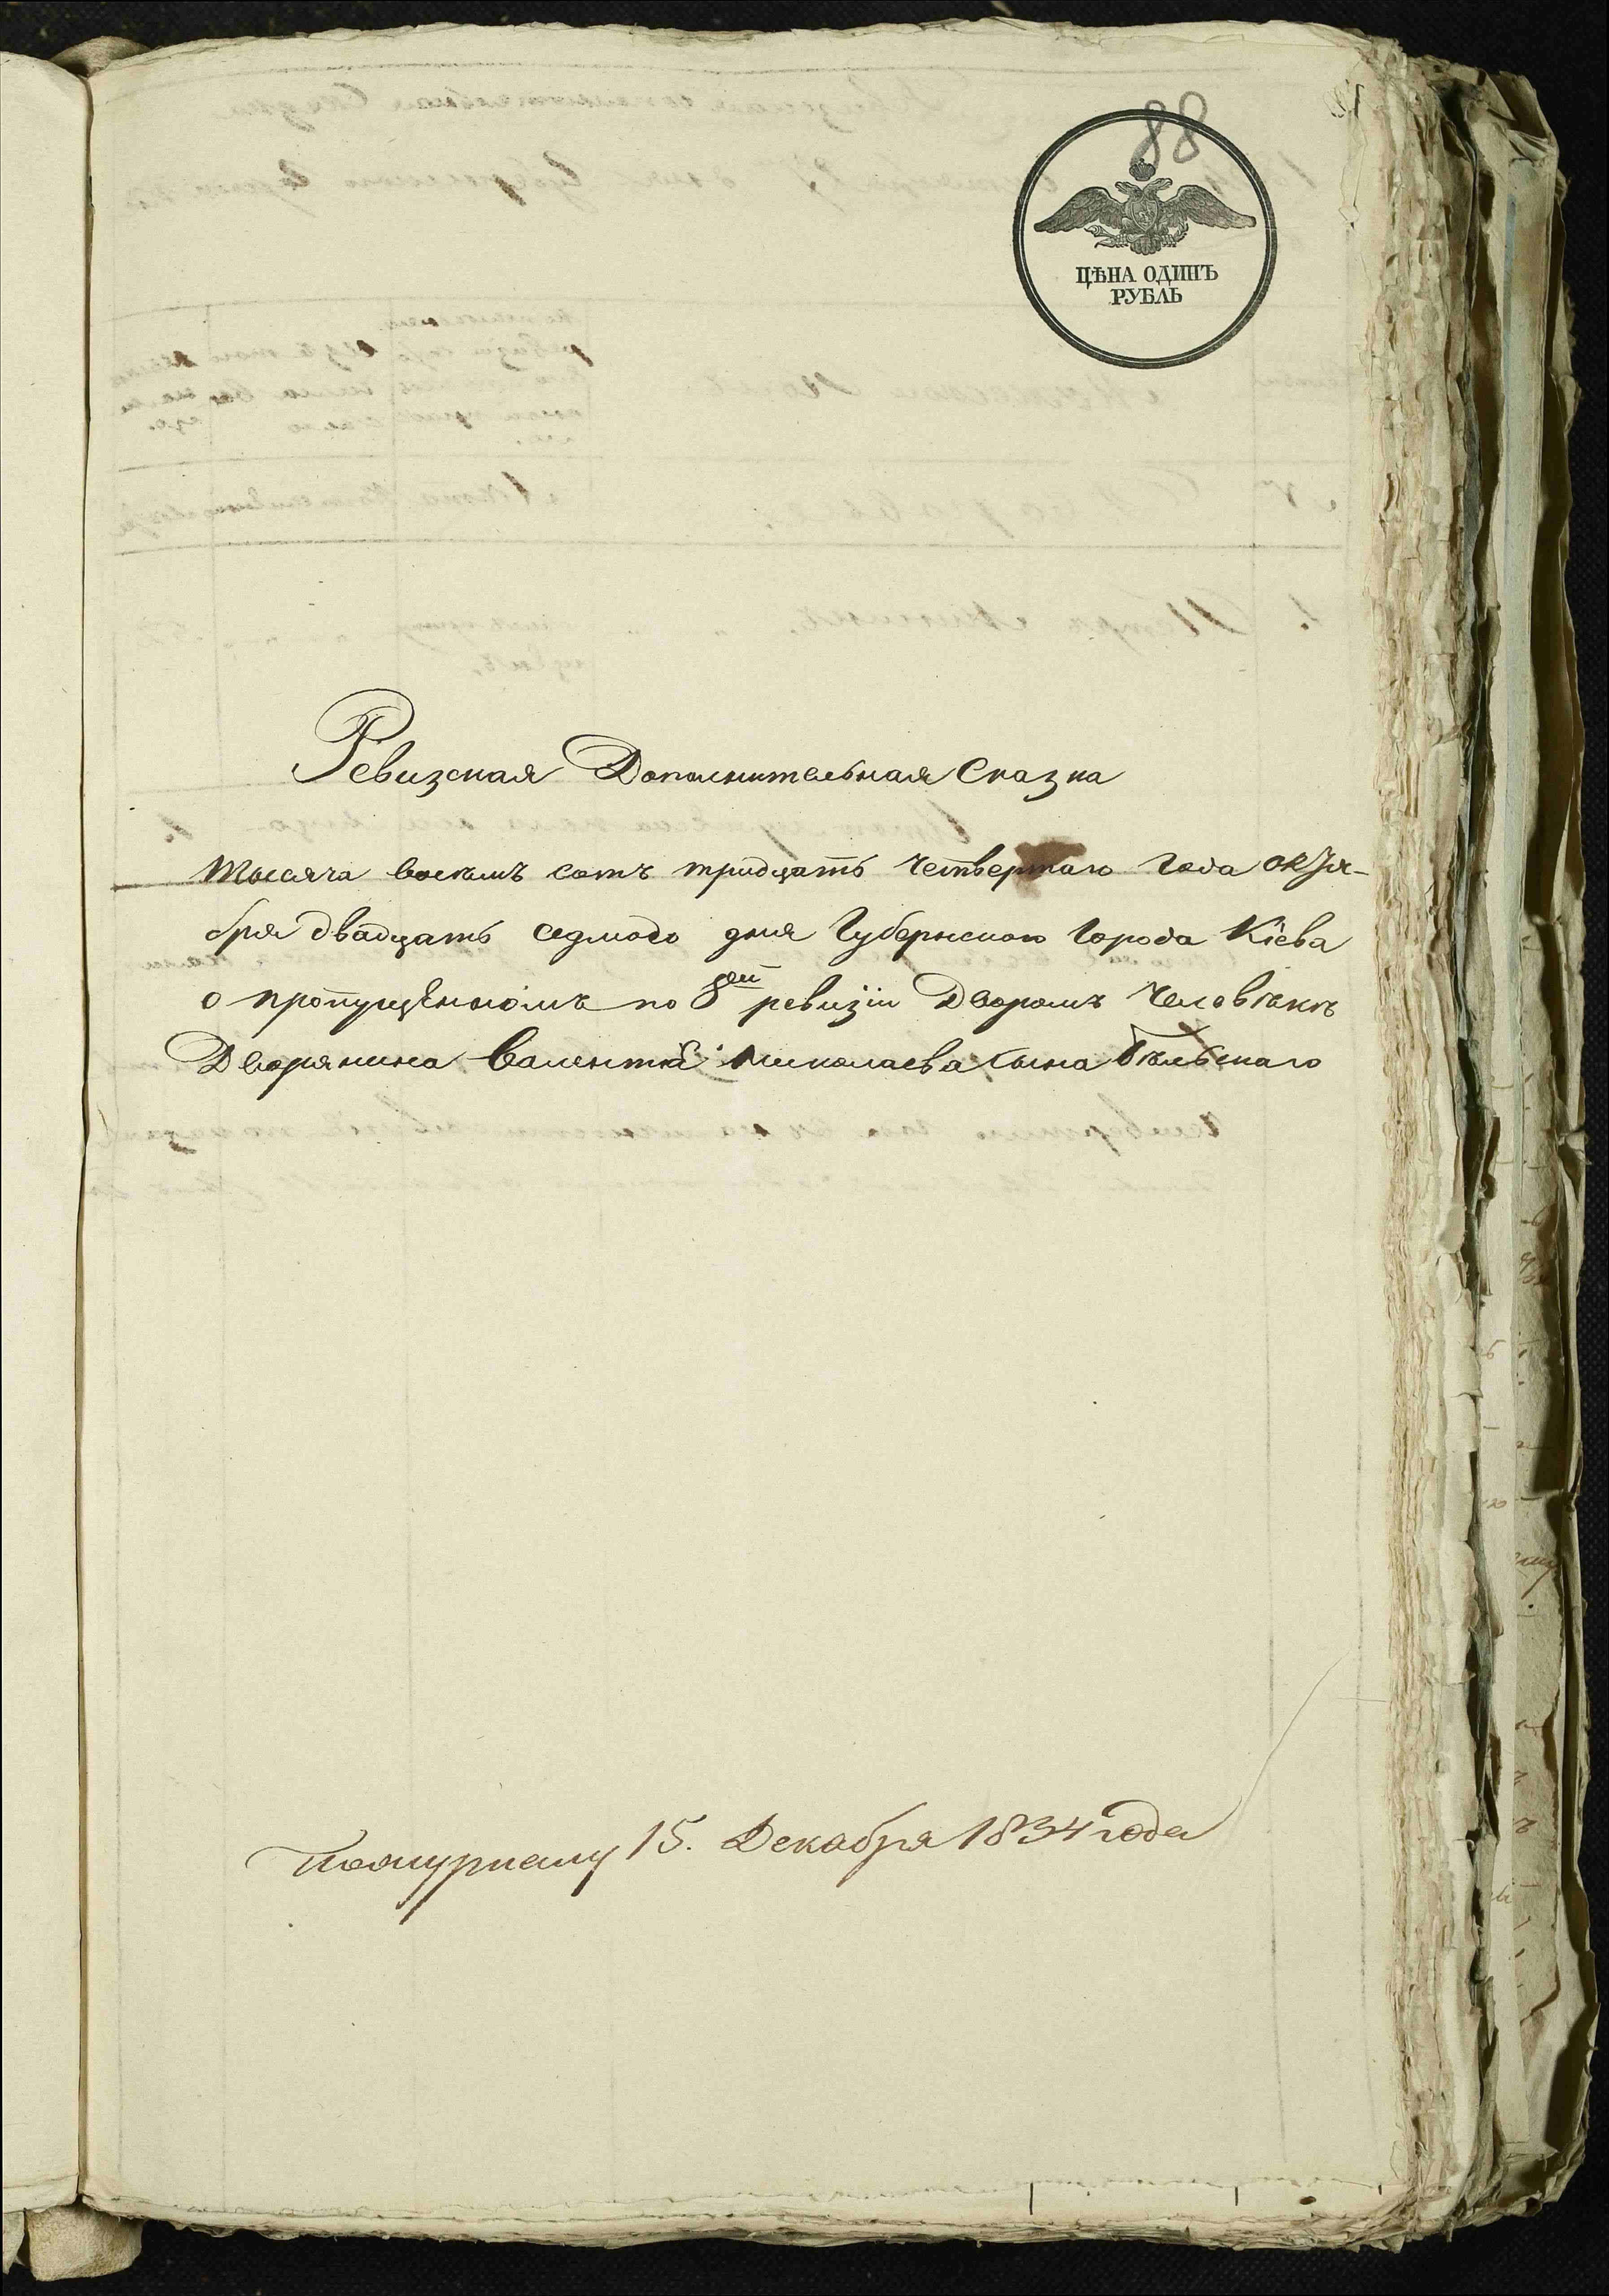 88
ЦѢНА ОДИНЪ
РУБЛЬ
Ревизская Дополнительная Сказка
тысяча восемъ сотъ тридцать четвертаго года октя-
бря двадцать седмого дня Губернскаго города Кіева
о пропущенномъ по 8ой ревизіи Дворомъ человѣкѣ
Дворянина Валентія Николаева сына Бѣльскаго
15. Декабря 1834 года